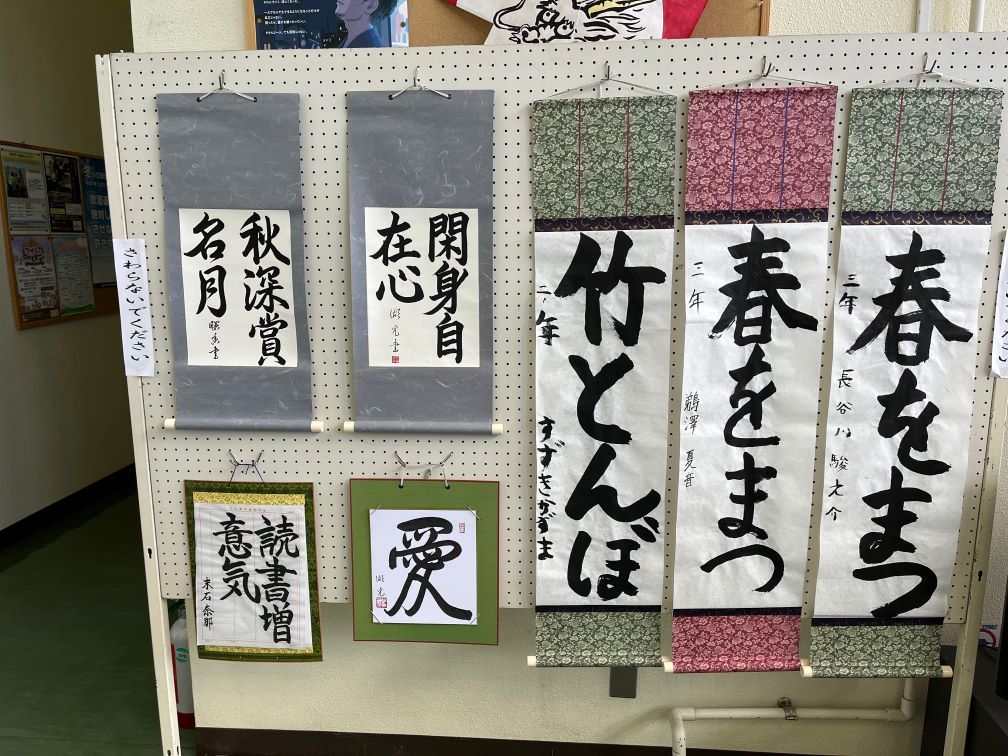 さわらないでください
秋深賞
名月
閑身自
在心
竹とんぼ
二年
すずきかずま
春をまつ
三年
鵜澤 夏音
春をまつ
三年
長谷川駿之介
読書増
意気
末石 泰那
愛